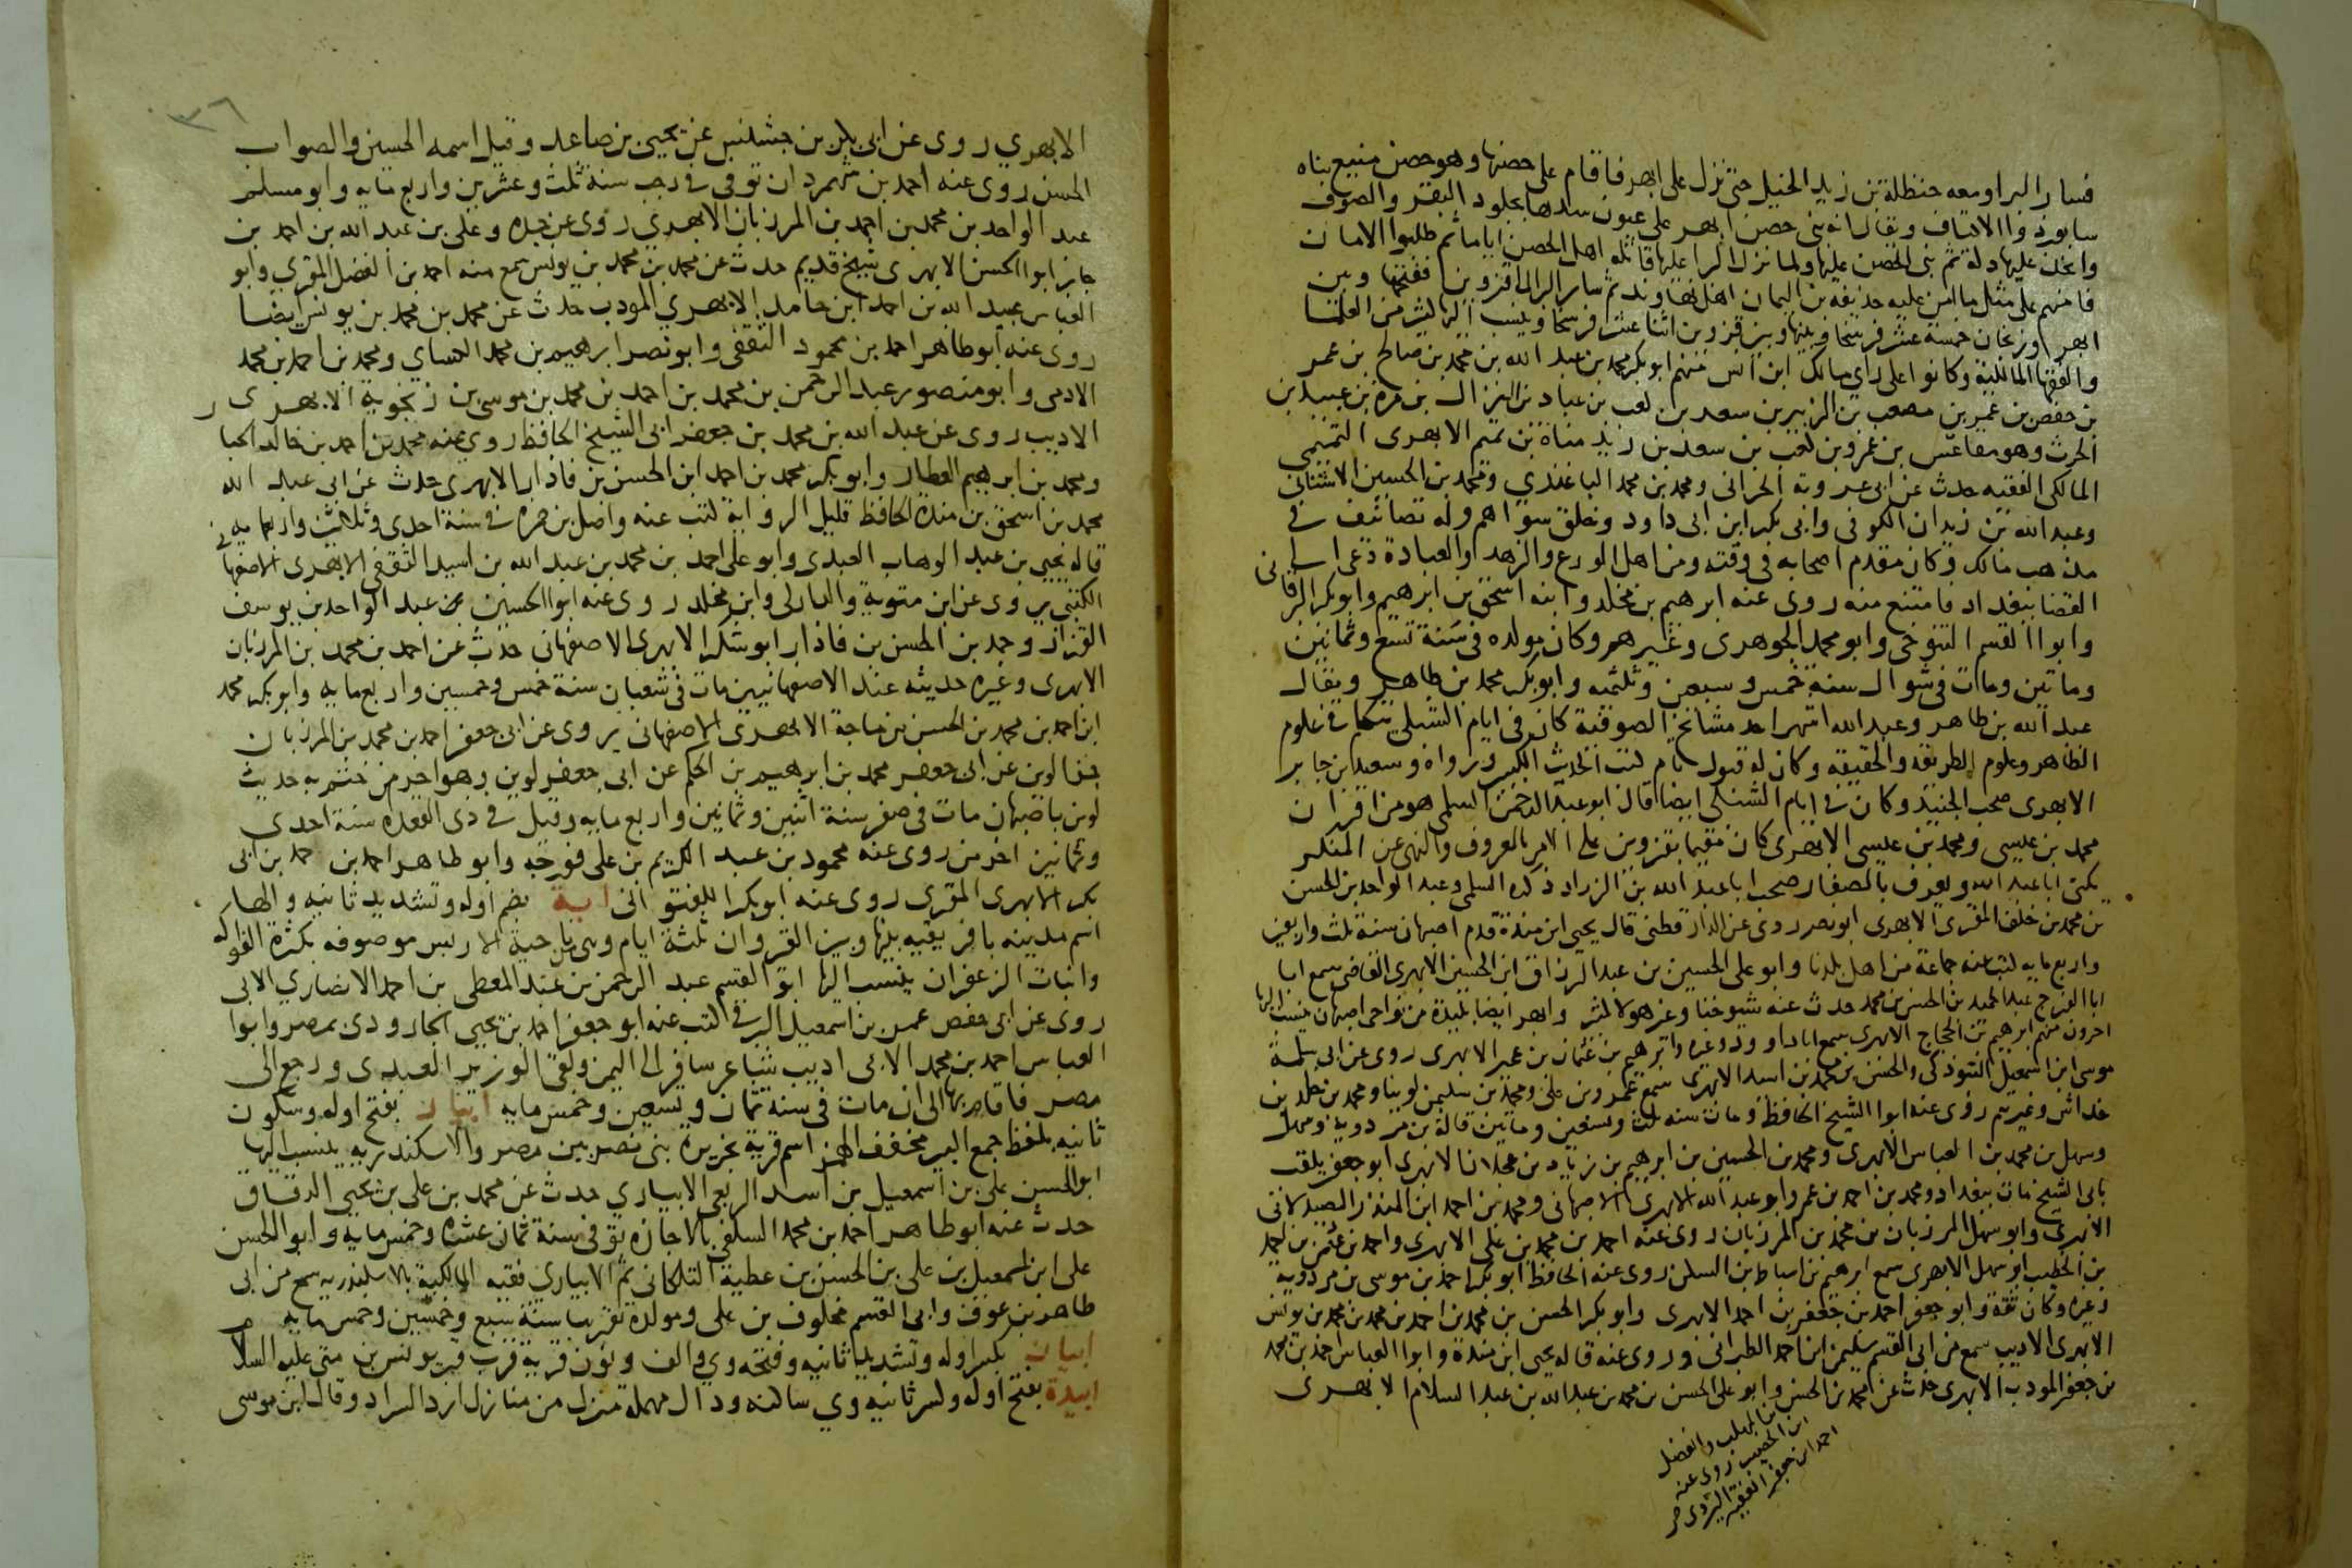 فسار البرا ومعه حنظلة بن زيد الخيل حتى نزل على ابهر فاقام على حصنها وهو حصن منيع بناه
سابور ذوا الاكتاف ويقال انه بنى حصن ابهر على عيون سدها بجلود البقر والصوف
واتخذ عليها دكة ثم بنى الحصن عليها ولما نزل البرا عليها قاتله اهل الحصن اياما ثم طلبوا الامان
فامنهم على مثل ما امن عليه حذيفة بن اليمان اهل نهاوند ثم سار البرا الى قزوين ففتحها وبين
ابهر وزنجان خمسة عشر فرسخا وبينها وبين قزوين اثنا عشر فرسخا وينسب اليها كثير من العلما
والفقها المالكية وكانوا على راي مالك ابن انس منهم ابو بكر محمد بن عبد الله بن محمد بن صالح بن عمر
بن حفص بن عمر بن مصعب بن الزبير بن سعد بن كعب بن عباد بن النزال بن مرة بن عبيد بن
الحرث وهو مقاعس بن عمرو بن كعب بن سعد بن زيد مناة بن تميم الابهرى التميمي
المالكى الفقيه حدث عن ابى عروبة الحرانى ومحمد بن محمد الباغندي ومحمد بن الحسين الاشنانى
وعبد الله بن زيدان الكوفى وابى بكر ابن ابى داود وخلق سواهم وله تصانيف فى
مذهب مالك وكان مقدم اصحابه فى وقته ومن اهل الورع والزهد والعبادة دعى الى
القضا ببغداد فامتنع منه روى عنه ابرهيم بن مخلد وابنه اسحق بن ابرهيم وابو بكر البرقانى
وابوا القسم التنوخى وابو محمد الجوهرى وغيرهم وكان مولده فى سنة تسع وثمانين
وماتين ومات فى شوال سنة خمس وسبعين وثلثمه وابو بكر محمد بن طاهر ويقال
عبد الله بن طاهر وعبد الله اشهر احد مشائخ الصوفية كان فى ايام الشبلي يتكلم فى علوم
الظاهر وعلوم الطريقة والحقيقة وكان له قبول تام كتب الحديث الكثير ورواه وسعيد بن جابر
الابهرى صحب الجنيد وكان فى ايام الشبلى ايضا قال ابو عبد الرحمن السلمى هو من اقران
محمد بن عيسى ومحمد بن عيسى الابهرى كان مقيما بقزوين على الامر بالمعروف والنهى عن المنكر
يكنى ابا عبد الله ويعرف بالصفار صحب ابا عبد الله بن الزراد ذكره السلمى وعبد الواحد بن الحسن
بن محمد بن خلف المقرى الابهرى ابو نصر روى عن الدارقطنى قال يحيى ابن مندة قدم اصبهان سنة ثلث واربعين
واربع مايه كتب عنه جماعة من اهل بلدنا وابو على الحسين بن عبد الرزاق ابن الحسين الابهرى القاضى سمع ابا
ابا الفرج عبد الحميد بن الحسن بن محمد حدث عنه شيوخنا وغير هولا كثير وابهر ايضا بليدة من نواحى اصبهان ينسب اليها
اخرون منهم ابرهيم بن الحجاج الابهرى سمع ابا داود وغيره وابرهيم بن عثمان بن عمير الابهرى روى عن ابى سلمة
موسى ابن اسمعيل التبوذكى والحسن بن محمد بن اسد الابهرى سمع عمرو بن على ومحمد بن سليمن لوينا ومحمد بن خالد بن
خداش وغيرهم روى عنه ابوا الشيخ الحافظ ومات سنة ثلث وتسعين وماتين قاله بن مردويه وسهل
وسهل بن محمد بن العباس الابهرى ومحمد بن الحسين بن ابرهيم بن زياد بن عجلان الابهرى ابو جعفر يلقب
بابى الشيخ مات ببغداد ومحمد بن احمد بن عمر وابو عبد الله الابهرى الاصبهانى ومحمد بن احمد ابن المنذر الصيدلانى
الابهرى وابو سهل المرزبان بن محمد بن المرزبان روى عنه احمد بن محمد بن على الابهرى واحمد بن عثمن بن احمد
بن الخطيب ابو سهل الابهرى سمع ابرهيم بن اسباط بن السكن روى عنه الحافظ ابو بكر احمد بن موسى بن مردويه
وغيره وكان ثقة وابو جعفر احمد بن جعفر بن احمد الابهرى وابو بكر الحسن بن محمد بن احمد بن محمد بن محمد بن يونس
الابهرى الاديب سمع من ابى القسم سليمن ابن احمد الطبرانى وروى عنه قاله يحيى ابن مندة وابوا العباس احمد بن محمد
بن جعفر المودب الابهرى حدث عن محمد بن الحسن وابو على الحسن بن محمد بن عبد الله بن عبد السلام الابهرى
ابن المهلب والفضل
ابن الخصيب روى عنه
احمد ابن جعفر الفقيه اليزدى صح
٣٦
الابهري روى عن ابى بكر بن جشنس عن يحيى بن صاعد وقيل اسمه الحسين والصواب
الحسن روى عنه احمد بن شهمردان توفى فى رجب سنة ثلث وعشرين واربع مايه وابو مسلم
عبد الواحد بن محمد بن احمد بن المرزبان الابهرى روى عن جده وعلى بن عبد الله بن احمد بن
جابر ابوا الحسن الابهرى شيخ قديم حدث عن محمد بن محمد بن يونس سمع منه احمد بن الفضل المقرى وابو
العباس عبيد الله بن احمد ابن حامد الابهري المودب حدث عن محمد بن محمد بن يونس ايضا
روى عنه ابو طاهر احمد بن محمود الثقفى وابو نصر ابرهيم بن محمد الكساي ومحمد بن احمد بن محمد
الادمى وابو منصور عبد الرحمن بن محمد بن احمد بن محمد بن موسى بن زنجويه الابهرى
الاديب روى عن عبد الله بن محمد بن جعفر ابى الشيخ الحافظ روى عنه محمد بن احمد بن خالد الخباز
ومحمد بن ابرهيم العطار وابو بكر محمد بن احمد ابن الحسن بن فاذار الابهرى حدث عن ابى عبد الله
محمد بن اسحق بن مندة الحافظ قليل الرواية كتب عنه واصل بن حمزه فى سنة احدى وثلاثين واربعمايه
قاله يحيى بن عبد الوهاب العبدى وابو على احمد بن محمد بن عبد الله بن اسيد الثقفى الابهرى الاصفهانى
الكتبى يروى عن ابن متويه والداركى وابن مخلد روى عنه ابوا الحسين عبد الواحد بن يوسف
القزاز وحمد بن الحسن بن فاذار ابو شكر الابهرى الاصفهانى حدث عن احمد بن محمد بن المرزبان
الابهرى وغيره حديثه عند الاصفهانيين مات فى شعبان سنة خمس وخمسين واربع مايه وابو بكر محمد
ابن احمد بن محمد بن الحسن بن ماجة الابهرى الاصفهانى يروى عن ابى جعفر احمد بن محمد بن المرزبان
جزا لوين عن ابى جعفر محمد بن ابرهيم بن الحكم عن ابى جعفر لوين وهو اخر من ختم به حديث
لوين باصبهان مات فى صفر سنة اثنين وثمانين واربع مايه وقيل فى ذى القعده سنة احدى
وثمانين اخر من روى عنه محمود بن عبد الكريم بن على فورجه وابو طاهر احمد بن حمد بن ابى
بكر الابهرى المقرى روى عنه ابو بكر اللفتوانى ابة بضم اوله وتشديد ثانيه والها
اسم مدينه بافريقيه بينها وبين القيروان ثلثة ايام وهى من ناحية الاربس موصوفه بكثرة الفواكه
وانبات الزعفران ينسب اليها ابو القسم عبد الرحمن بن عبد المعطى بن احمد الانصاري الابى
روى عن ابى حفص عمر بن اسمعيل البرقى كتب عنه ابو جعفر احمد بن يحيى الجارودى بمصر وابوا
العباس احمد بن محمد الابى اديب شاعر سافر الى اليمن ولقى الوزير العيدى ورجع الى
مصر فاقام بها الى ان مات فى سنة ثمان وتسعين وخمس مايه ابيار بفتح اوله وسكون
ثانيه بلفظ جمع البير مخفف الهمز اسم قرية بجزيرة بنى نصر بين مصر والاسكندريه ينسب اليها
ابو الحسن على بن اسمعيل بن اسد الربعى الابياري حدث عن محمد بن على بن يحيى الدقاق
حدث عنه ابو طاهر احمد بن محمد السلفى بالاجازه توفى سنة ثمان عشره وخمس مايه وابو الحسن
على ابن اسمعيل بن على بن الحسن بن عطية التلكاتى ثم الابياري فقيه المالكية بالاسكندريه سمع من ابى
طاهر بن عوف وابى القسم مخلوف بن على ومولده تقريبا سنة سبع وخمسين وخمس مايه
ابيان بكسر اوله وتشديد ثانيه وفتحه وي والف ونون قرية قرب قبر يونس بن متى عليه السلام
ابيدة بفتح اوله وكسر ثانيه وي ساكنه ودال مهملة منزل من منازل ازد السراد وقال ابن موسى